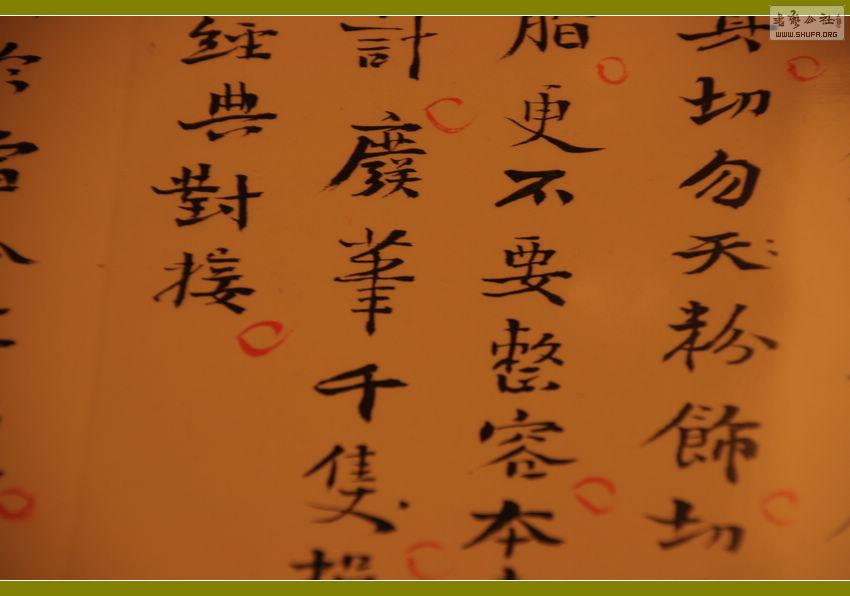 切勿天粉飾切
脂更不要整容本
計廢筆千隻
經典對接
書藝公社
WWW.SHUFA.ORG